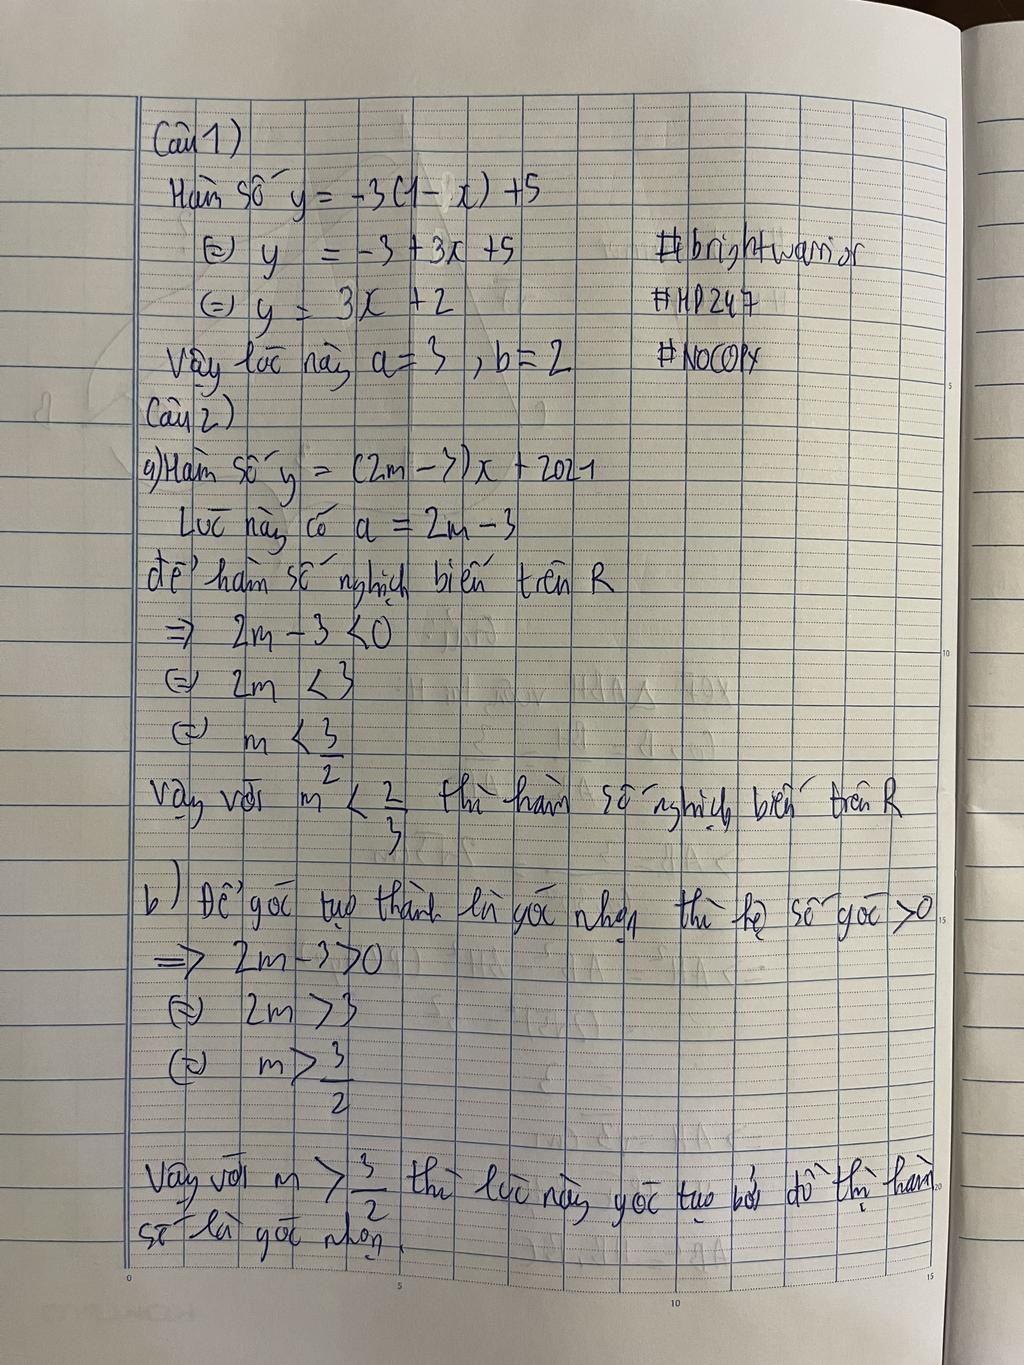 Câu 1)
Hàm số y = -3(1-x) +5
(=) y = -3 +3x +5
#brightwarrior
(=) y = 3x +2
#HD247
Vậy lúc này a=3 , b=2
#NOCOPY
Câu 2)
a) Hàm số y = (2m-3)x + 2021
Lúc này có a = 2m-3
để hàm số nghịch biến trên R
=> 2m-3 <0
(=) 2m <3
(=) m < 3/2
Vậy với m < 2/3 thì hàm số nghịch biến trên R
b) Để góc tạo thành là góc nhọn thì hệ số góc >0
=> 2m-3>0
(=) 2m >3
(=) m > 3/2
Vậy với m > 3/2 thì lúc này góc tạo bởi đồ thị hàm
số là góc nhọn.
5
10
15
20
0
5
10
15